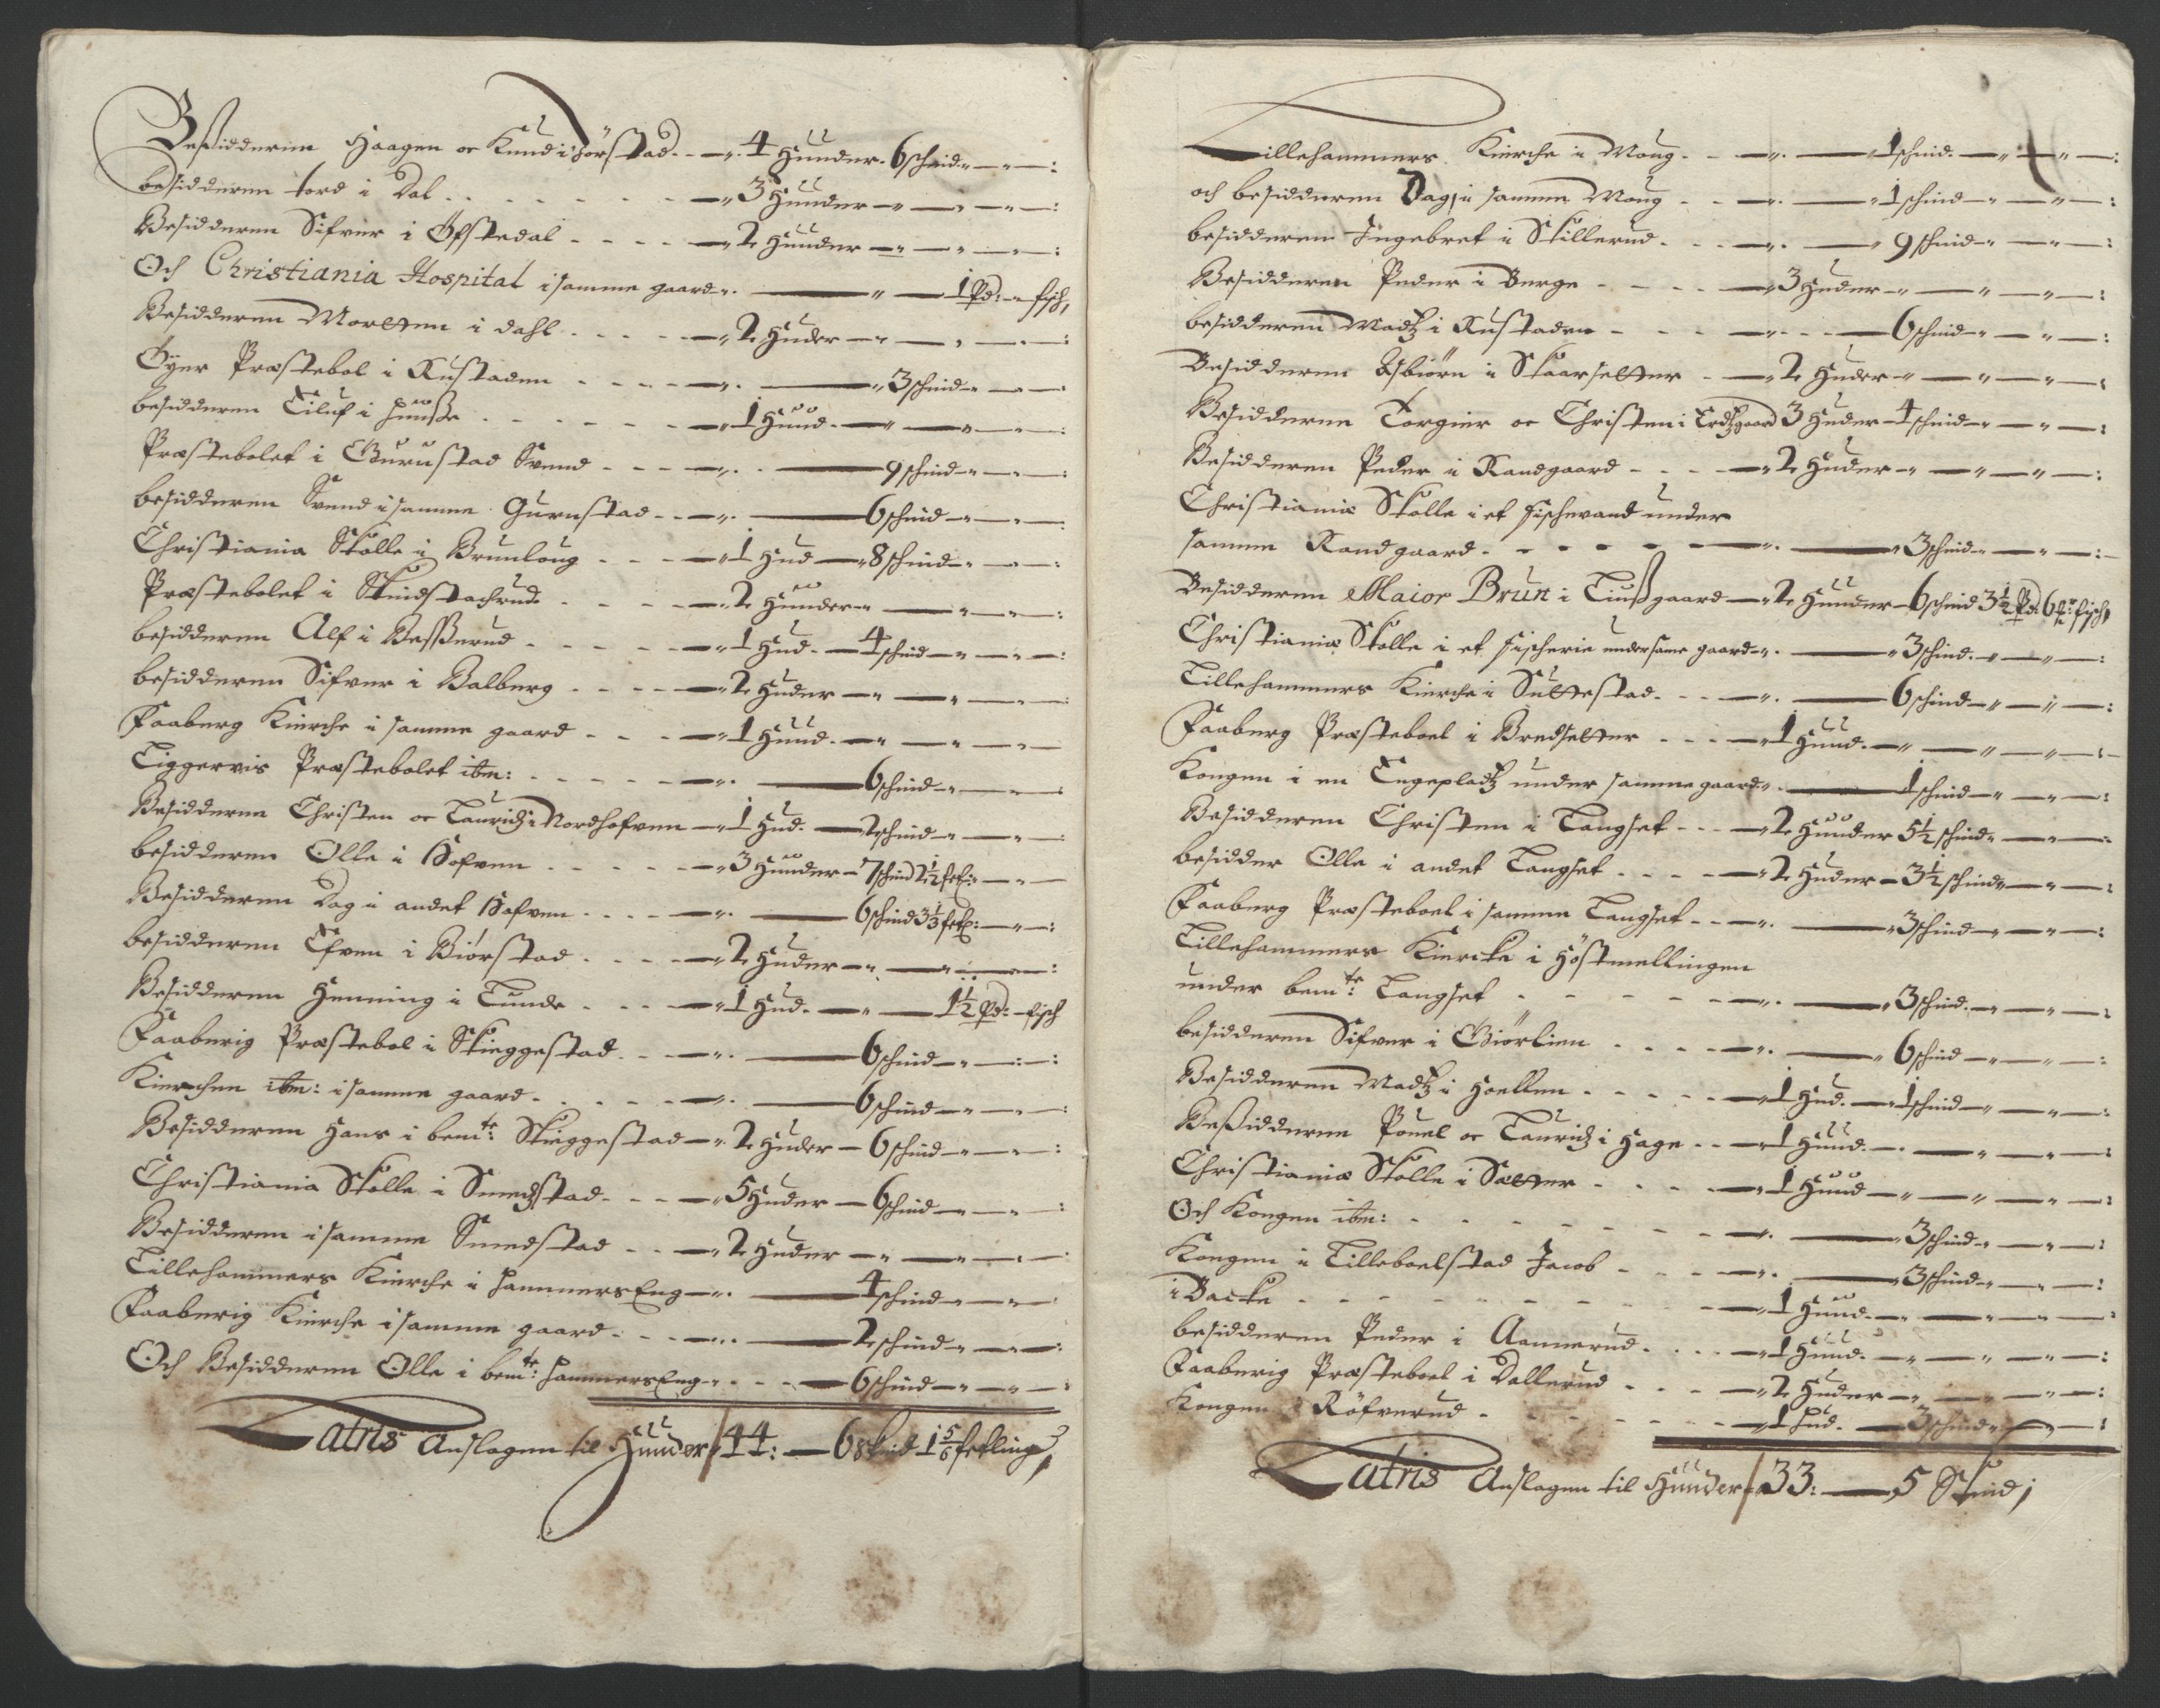 Beßidderne Haagen oc Knud i Jörstad - - 4 Hunder - 6 schind
besidderen tord i Dal - - - 3 Hunder
Besidderen Sifver i Ofstedal - - - 2 Hunder
Och Christiania Hospital i samme gaard - - 1 Pd: fisch
Besidderen Mortten i dahl - - - 2 Huder
Öyer Præstebol i Rustaden - - - 3 schind
besidderen Eiluf i - - - 1 Hud
Præstebolet i Gurustad Svend - - - 9 schind
besidderen Svend i samme Gurustad - - 6 schind
Christiania Skolle i Brunloug - - - 1 Hud - 8 schind
Præstebolet i - - - 2 Hunder
besidderen Alf i - - - 1 Hud - 4 schind
besidderen Sifver i Balberg - - - 2 Huder
Faaberg Kierche i samme gaard - - - 1 Hund
Liggervis Præstebolet ibm: - - - 6 schind
Besidderne Christen oc Lauridz i Nordhofven - 1 Hud - 2 schind
besidderen Olle i Hofven - - - 3 Hunder - 7 schind 2½
Besidderen Dag i andet Hofven - - - 6 schind 3⅓
besidderen Efven i Biørstad - - - 2 Huder
Besidderen Henning i Lunde - - - 1 Hud - 1½ Pd: fisch
Faaberig Præstebol i Skieggestad - - 6 schind
Kierchen ibm: i samme gaard - - - 6 schind
Besidderen Hans i bemte: Skieggestad - 2 Huder - 6 schind
Christiania Skolle i Smedzstad - - - 5 Huder - 6 schind
Besidderen i samme Smedstad - - - 2 Huder
Lillehammers Kierche i HammersEng - - 4 schind
Faaberig Kierche i samme gaard - - - 2 schind
Och Besidderen Olle i bemte: HammersEng - - - 6 schind
Latris Anslagen til Hunder 44: - 6 skind 1 5/6 fetlinge
Lillehammers Kierche i Moug - - - 1 schind
och besidderen Dag i samme Moug - - - 1 schind
besidderen Ingebret i Skillerud - - - 9 schind
Besidderen Peder i Berge - - - 3 Huder
besidderen Madz i Rustaden - - - 6 schind
Besidderen Asbiörn i Skaarsetter - - 2 Huder
Besidderne Torgier oc Christen i 3 Huder - 4 schind
Besidderen Peder i Randgaard - - - 2 Huder
Christiania Skolle i et fischevand under
samme Randgaard - - - 3 schind
Besidderen Maior Brun i gaard - 2 Hunder - 6 schind 3½ Pd: 6 fisch
Christiania Skolle i et fischerie under same gaard - 3 schind
Lillehammers Kierche i Suttestad - - - 6 schind
Faaberg Præsteboel i Bredsetter - - - 1 Hund
Kongen i en Engepladz under samme gaard - 1 schind
Besidderen Christen i Langset - - - 2 Hunder 5½ schind
besidder Olle i andet Langset - - - 2 Huder - 3½ schind
Faaberg Præsteboel i samme Langset - - - 3 schind
Lillehammers Kiercke i Höstmellingen
under bemte: Langset - - - 3 schind
besidderen Sifver i Giörlien - - - 6 schind
Besidderen Madz i Hoellen - - - 1 Hud - 1 schind
Beßidderne Pouel oc Lauridz i Hage - - 1 Hund
Christiania Skolle i Sætter - - - 1 Hund
Och Kongen ibm: - - - 3 schind
Kongen i Lilleboelstad Jacob - - - 3 schind
i Backe - - - 1 Hund
besidderen Peder i Aannerud - - - 1 Hund
Faaberig Præsteboel i Dallerud - - - 2 Huder
Kongen i Röfverud - - - 1 Hud - 3 schind
Latris Anslagen til Hunder 33: - 5 Skind